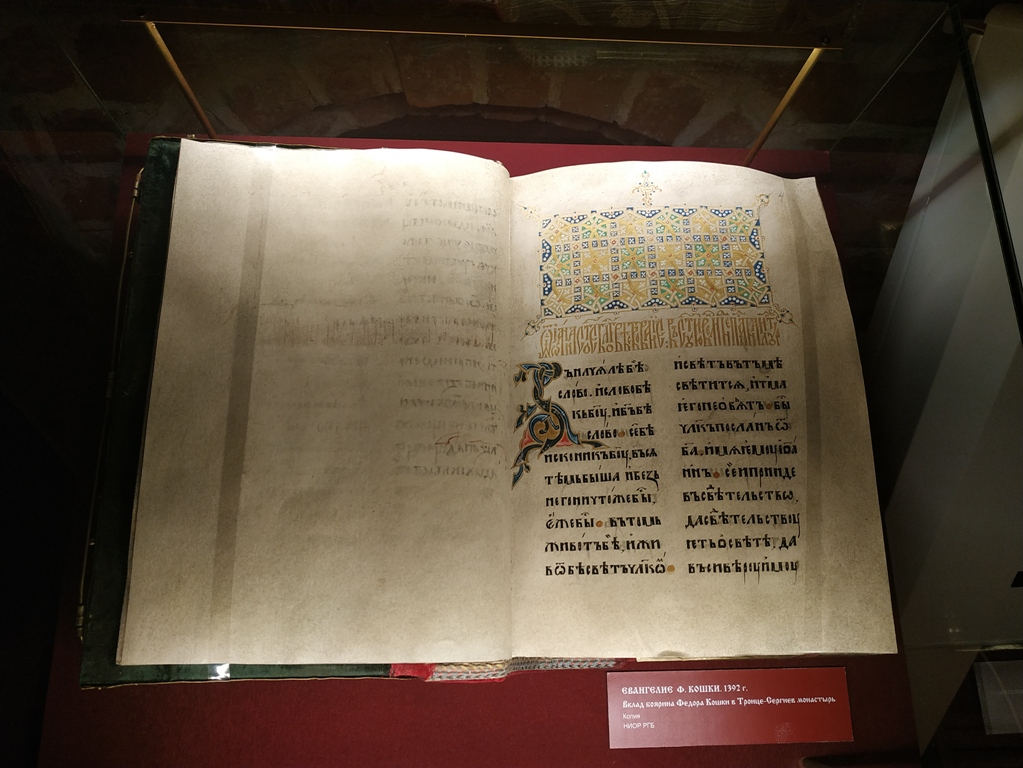 ъначалѣбѣ
слово. ислово бѣ
къ бꙋ҃, и б҃ъ бѣ
слово се бѣ
искони къ бꙋ҃, въсѧ
тѣмь быша и безъ
него ничтоже бы҃,
еже бы҃ въ томь
животъ бѣ, и жи
вѿ бѣ свѣтъ чл҃кѡ҃
и свѣтъ въ тьмѣ
свѣтитсѧ, и тма
его не ѡбѧтъ бы
чл҃къ посланъ ѿ
ба҃. имѧ емꙋ іѡа
ннъ сеи прииде
въ свѣ҃тельство,
да свѣ҃тельствꙋ
еть ѡ свѣтѣ, да
въси вѣрꙋ имꙋ
ЕВАНГЕЛИЕ Ф. КОШКИ. 1392 г.
Вклад боярина Федора Кошки в Троице-Сергиев монастырь
Копия
НИОР РГБ